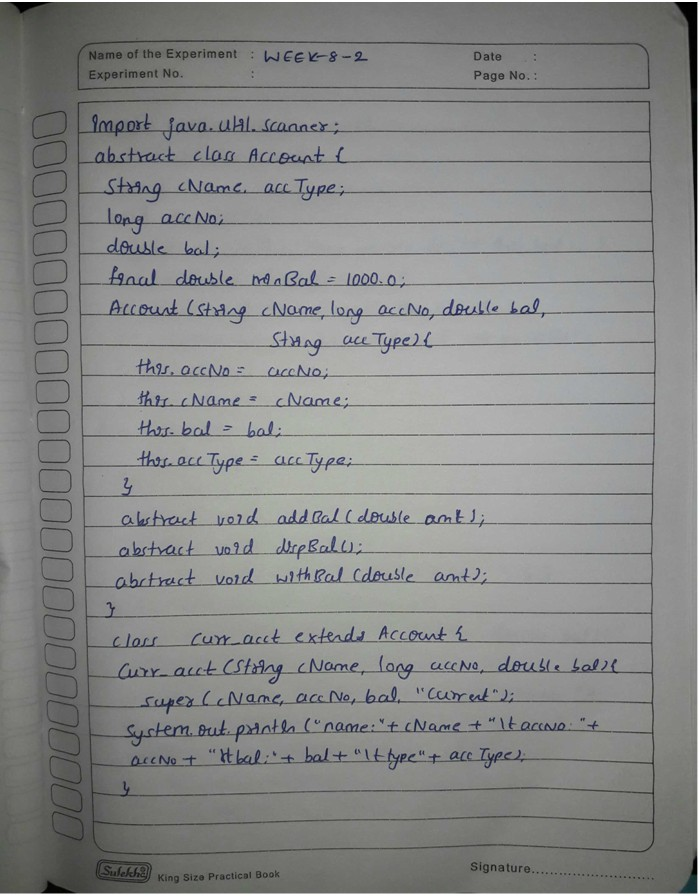 Name of the Experiment : WEEK-8-2
Date :
Experiment No. :
Page No. :
Import java.util.scanner;
abstract class Account {
String cName, accType;
long accNo;
double bal;
final double minBal = 1000.0;
Account (String cName, long accNo, double bal,
String accType) {
this.accNo = accNo;
this.cName = cName;
this.bal = bal;
this.accType = accType;
}
abstract void addBal (double amt);
abstract void dispBal();
abstract void withBal (double amt);
}
class Curr_acct extends Account {
Curr_acct (String cName, long accNo, double bal) {
super (cName, accNo, bal, "Current");
System.out.println ("name:"+ cName + "\t accno:"+
accNo + "\t bal:"+ bal + "\t type"+ accType);
}
Sulekha King Size Practical Book
Signature..............................